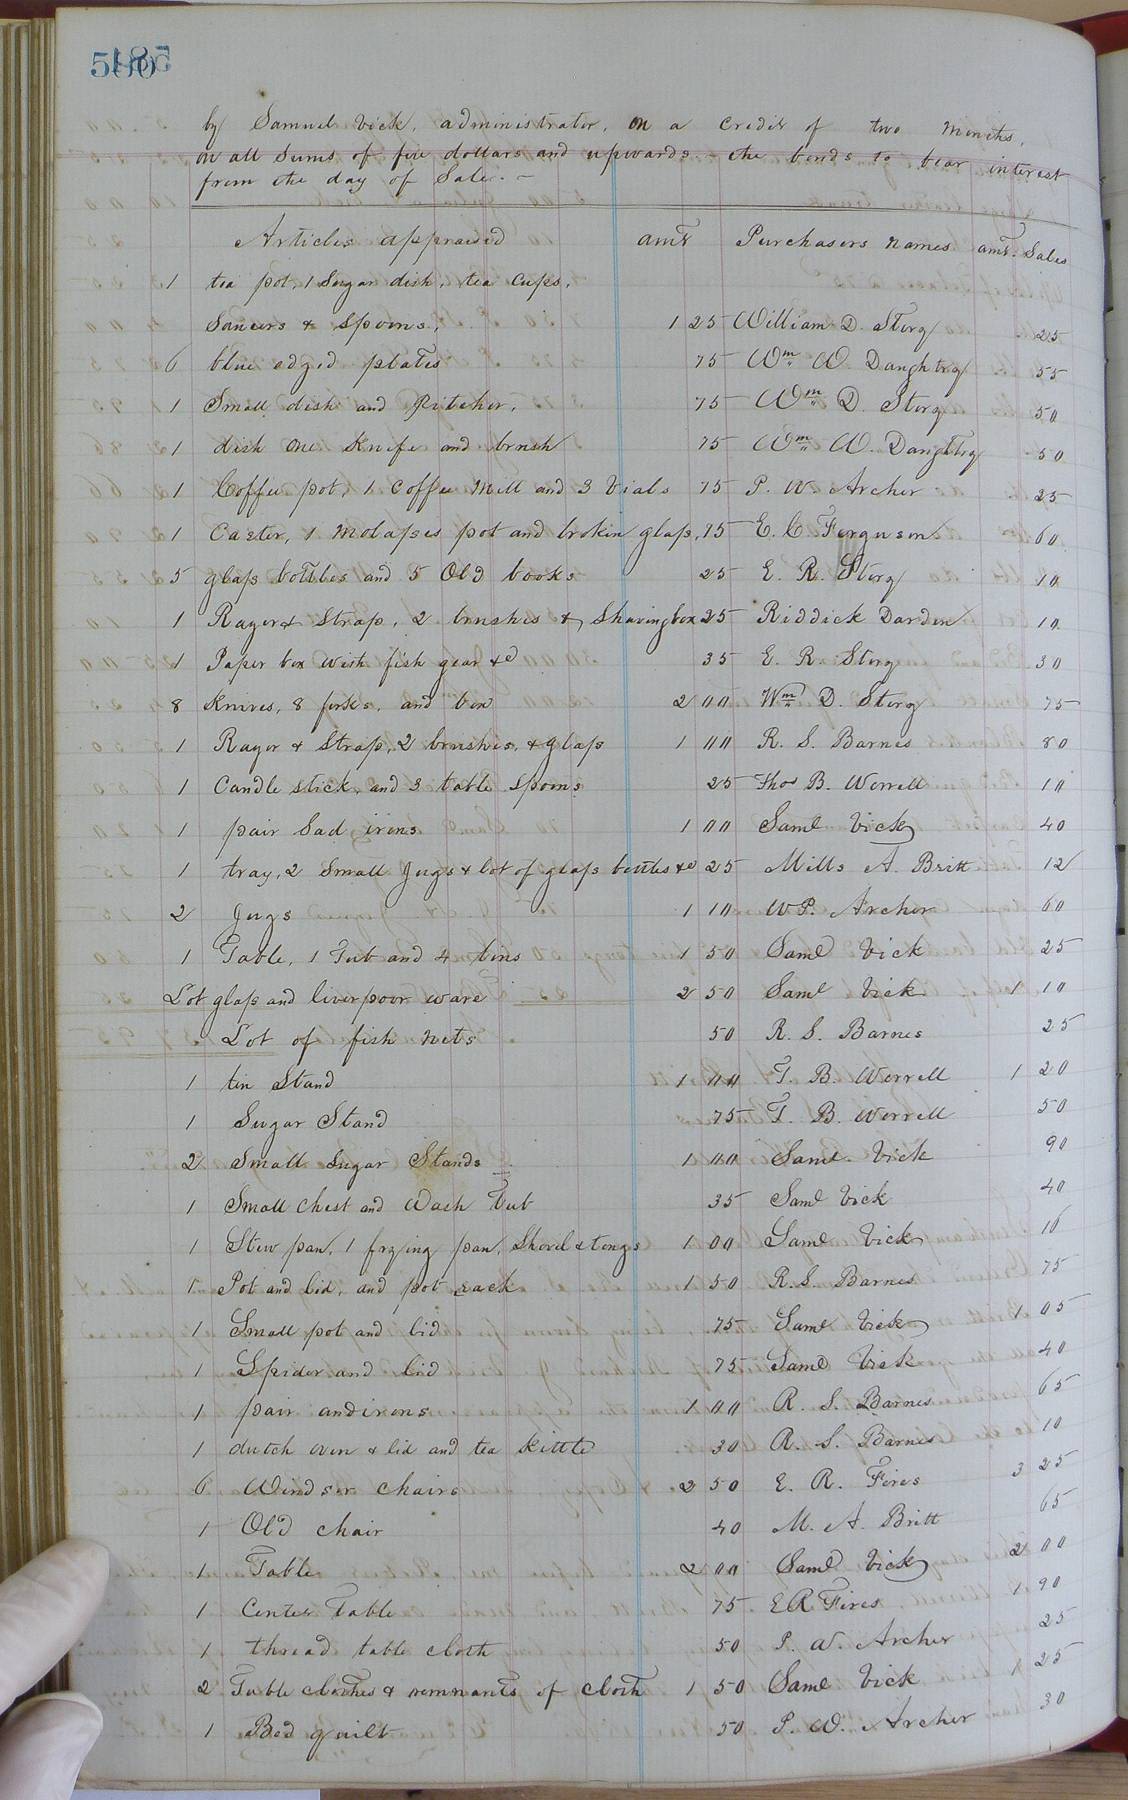 500
by Samuel Vick, administrator, on a credit of two months,
on all sums of five dollars and upwards - the bonds to bear interest
from the day of Sale. -
Articles appraised amt Purchasers names amt. Sales
1 tea pot, 1 Sugar dish, tea cups,
Saucers & Spoons, 1 25 William D. Story 25
6 blue edged plates 75 Wm W. Daughtry 55
1 Small dish and Pitcher, 75 Wm D. Story 50
1 dish one Knife and brush 75 Wm W. Daughtry 50
1 Coffee pot, 1 Coffee Mill and 3 Vials 75 P. W. Archer 25
1 Caster, 1 Molasses pot and broken glass, 75 E. C Ferguson 60
5 glass bottles and 5 Old books 25 E. R. Story 10
1 Rayor & Strap, 2 brushes & Shaving box 25 Riddick Darden 10
1 Paper box with fish gear &c 35 E. R. Story 30
8 Knives, 8 forks, and box 2 00 Wm D. Story 75
1 Rayor & Strap, 2 brushes, & glass 1 00 R. S. Barnes 80
1 Candle stick, and 3 table Spoons 25 Thos B. Worrell 10
1 pair Sad irons 1 00 Saml Vick 40
1 tray, 2 Small Jugs & lot of glass bottles &c 25 Mills A. Britt 12
2 Jugs 1 10 W P. Archer 60
1 Table, 1 Tub and 4 tins 1 50 Saml Vick 25
Lot glass and liverpoor ware 2 50 Saml Vick 1 10
Lot of fish nets 50 R. S. Barnes 25
1 tin Stand 1 00 T. B. Worrell 1 20
1 Sugar Stand 75 T. B. Worrell 50
2 Small Sugar Stands 1 00 Saml Vick 90
1 Small Chest and Wash Tub 35 Saml Vick 40
1 Stew pan, 1 frying pan, Shovel & tongs 1 00 Saml Vick 16
1 Pot and lid, and pot rack 1 50 R. S. Barnes 75
1 Small pot and lid 75 Saml Vick 1 05
1 Spider and lid 75 Saml Vick 40
1 pair andirons 1 00 R. S. Barnes 65
1 dutch oven & lid and tea kittle 30 R. S. Barnes 10
6 Windsor Chairs 2 50 E. R. Fires 3 25
1 Old Chair 40 M. A. Britt 65
1 Table 2 00 Saml Vick 2 00
1 Center Table 75 E R Fires 1 90
1 thread table cloth 50 P. W. Archer 25
2 Table Clothes & remnants of cloth 1 50 Saml Vick 25
1 Bed quilt 50 P. W. Archer 30